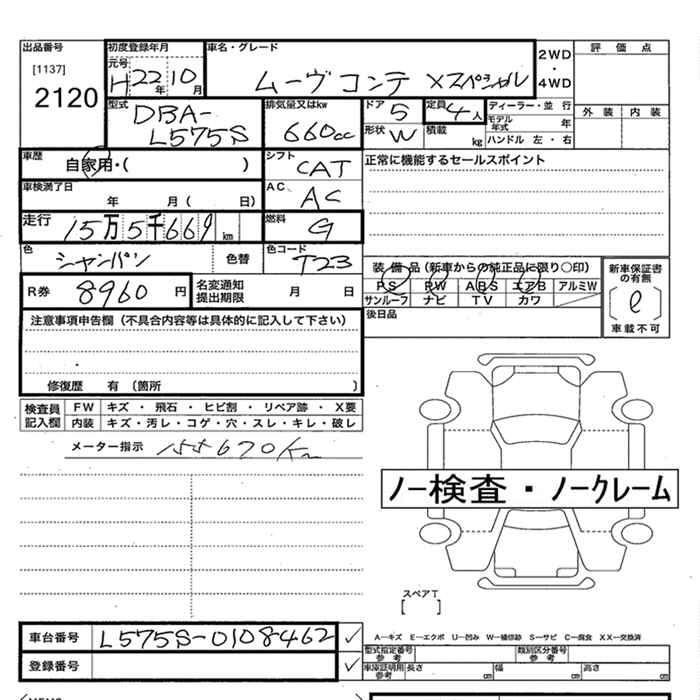 出品番号 初度登録年月 車名・グレード 2WD・4WD 評価点
[1137] 元号 H22年10月 ムーヴコンテ Xスペシャル
2120 型式 DBA-L575S 排気量又はkw 660cc ドア 5 定員 4人 ディーラー・並行 外装 内装
形状 W 積載 kg モデル年式 年 ハンドル 左・右
車歴 自家用・( ) シフト CAT 正常に機能するセールスポイント
車検満了日 年 月( 日) AC、 AC
走行 15万5千669km 燃料 G
色 シャンパン 色替 色コード T23 装備品(新車からの純正品に限り○印) 新車保証書の有無
R券 8960円 名変通知提出期限 月 日 PS PW ABS エアB アルミW
サンルーフ ナビ TV カワ 車載不可
注意事項申告欄(不具合内容等は具体的に記入して下さい) 後日品
修復歴 有 (箇所 )
検査員記入欄 FW キズ ・ 飛石 ・ ヒビ割 ・ リペア跡 ・ X要
内装 キズ・汚レ・コゲ・穴・スレ・キレ・破レ
メーター指示 155670Km
ノー検査・ノークレーム
スペアT
[ ]
車台番号 L575S-0108462 ✓ A―キズ E―エクボ U―凹み W―補修跡 S―サビ C―腐食 XX―交換済
型式指定番号 参考 類別区分番号 参考
登録番号 ✓ 車庫証明用参考 長さ cm 幅 cm 高さ cm
MEMO